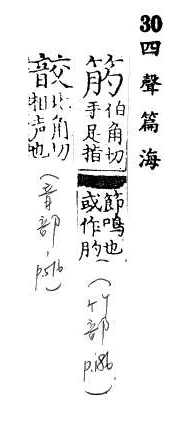 30 四聲篇海
伯角切
手足指節鳴也
或作肑
(竹部 p.186)
角切
也
(音部, p.516)